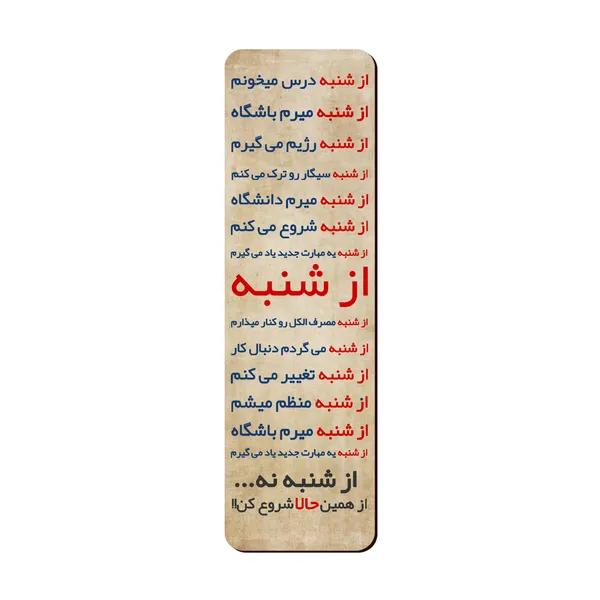 از شنبه درس میخونم
از شنبه میرم باشگاه
از شنبه رژیم می گیرم
از شنبه سیگار رو ترک می کنم
از شنبه میرم دانشگاه
از شنبه شروع می کنم
از شنبه یه مهارت جدید یاد می گیرم
از شنبه
از شنبه مصرف الکل رو کنار میذارم
از شنبه می گردم دنبال کار
از شنبه تغییر می کنم
از شنبه منظم میشم
از شنبه میرم باشگاه
از شنبه یه مهارت جدید یاد می گیرم
از شنبه نه...
از همین حالا شروع کن!!